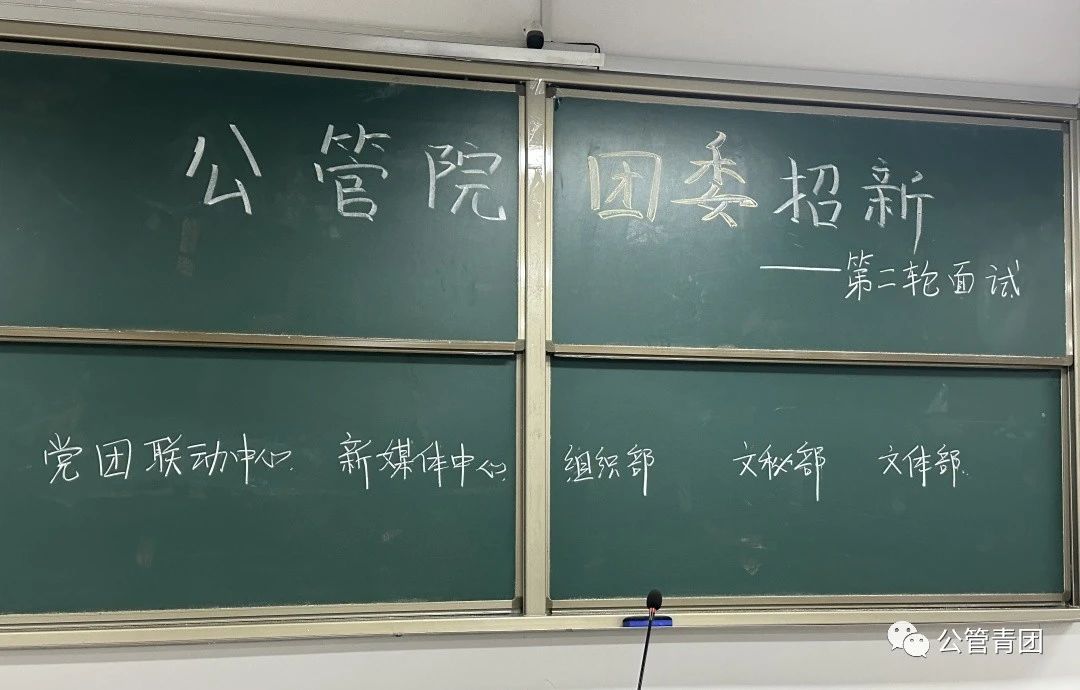 公管院 团委招新
——第二轮面试
党团联动中心 新媒体中心 组织部 文秘部 文体部
公管青团